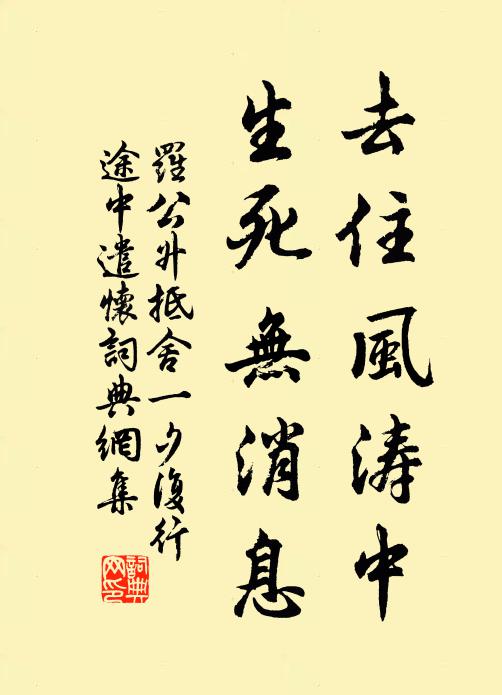 去住風涛中
生死無消息
羅公升抵舍一夕復行
途中遣懷詞典網集
詞典
网印